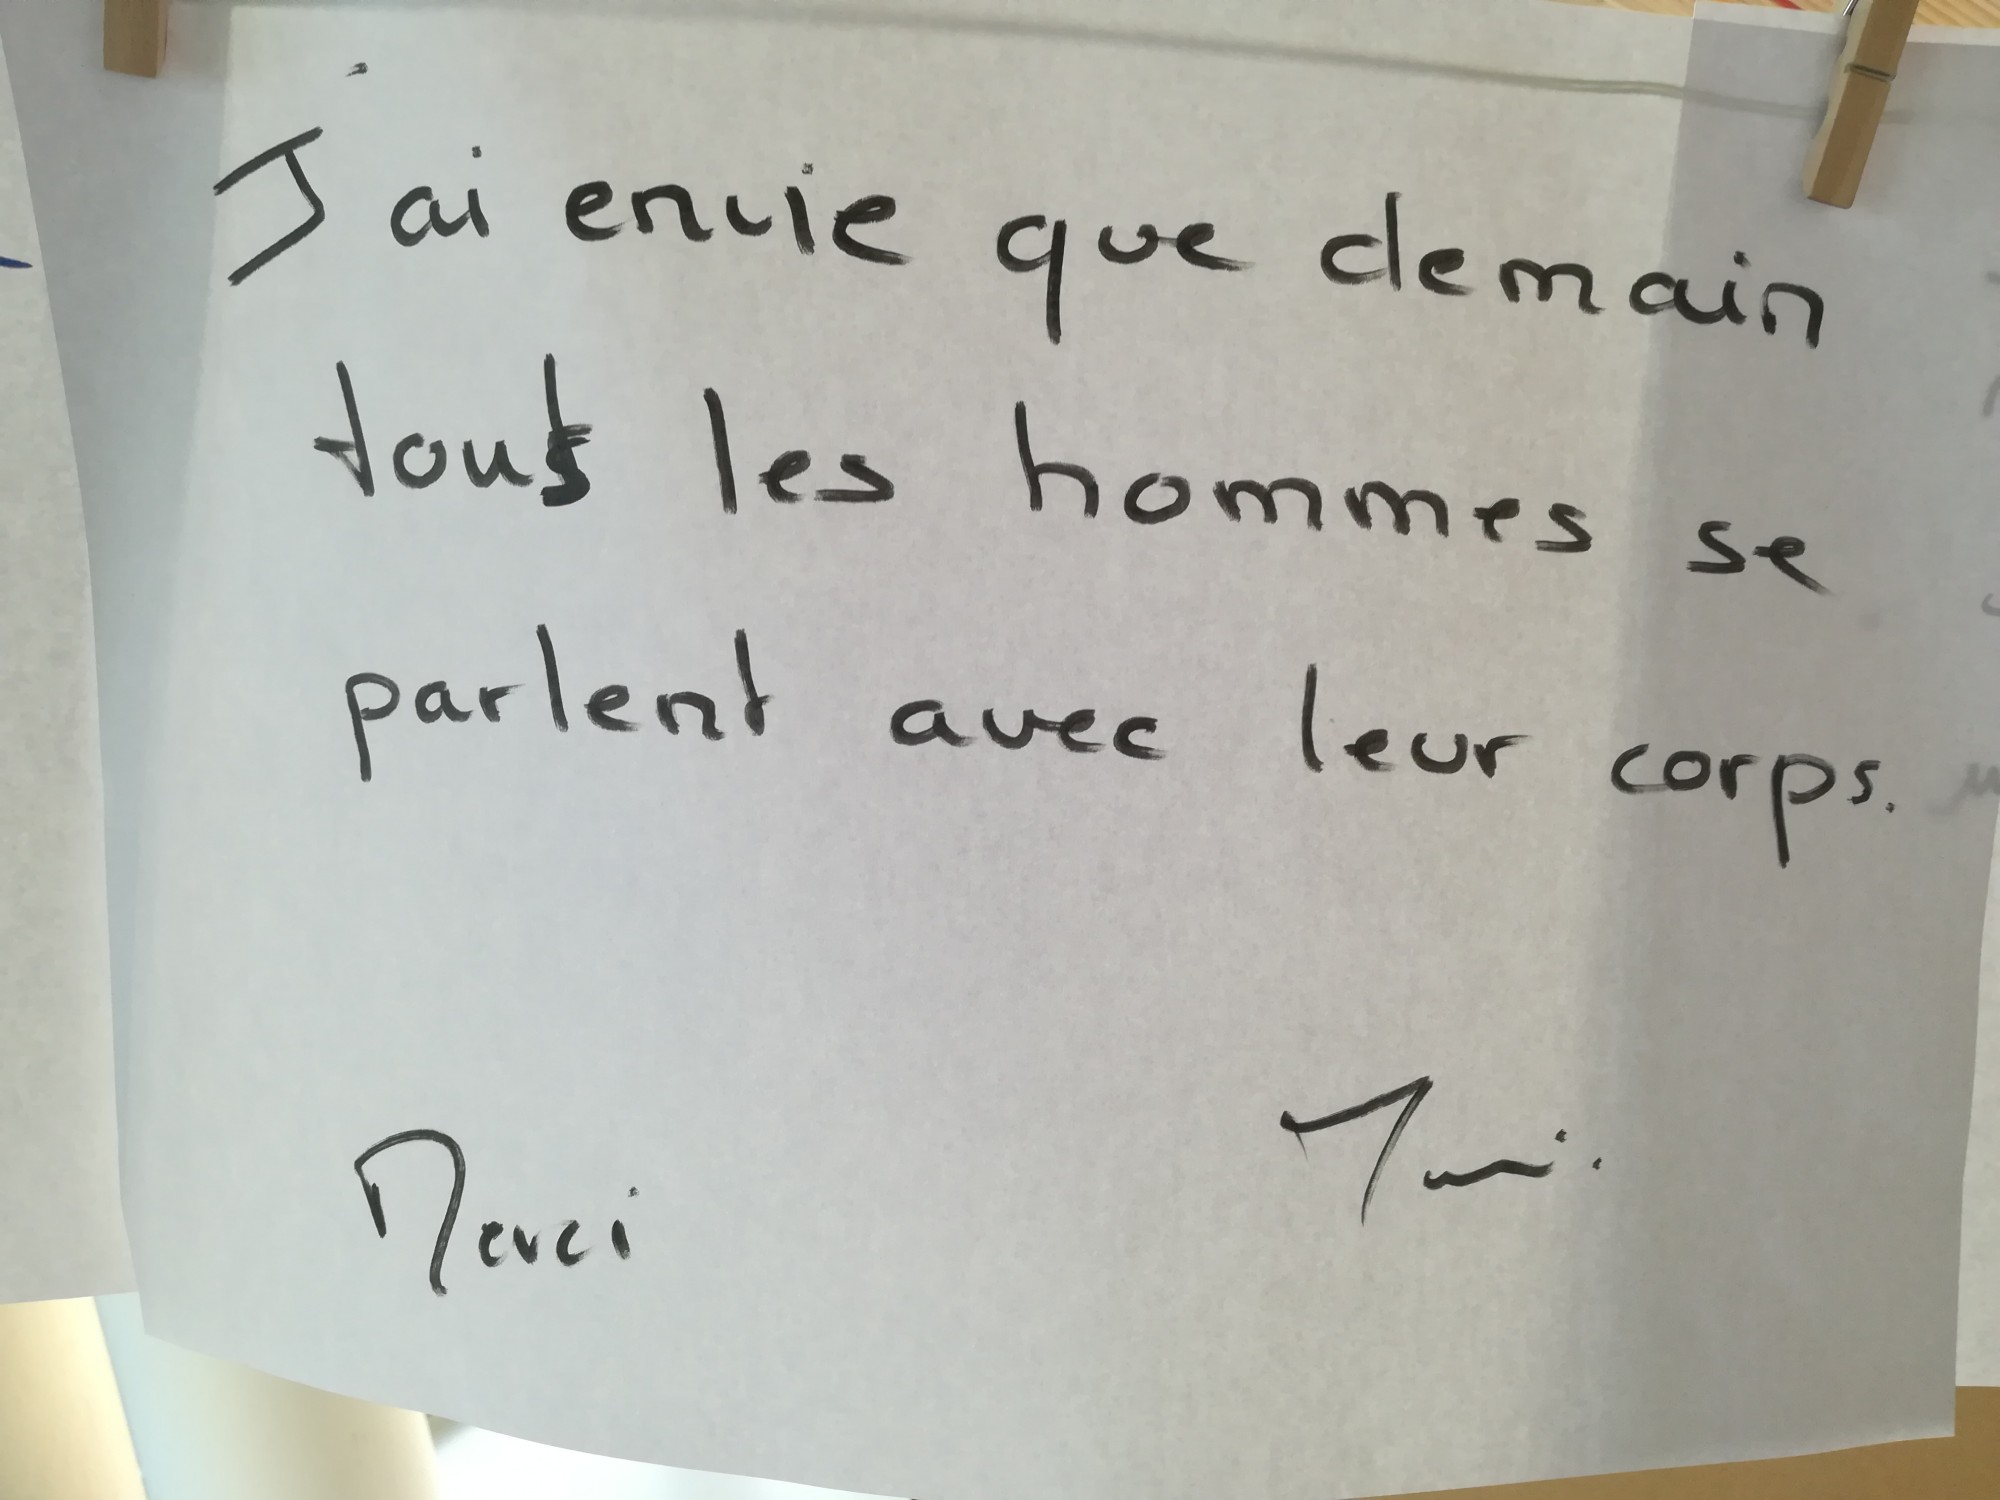 J'ai envie que demain
tous les hommes se
parlent avec leur corps.
Merci